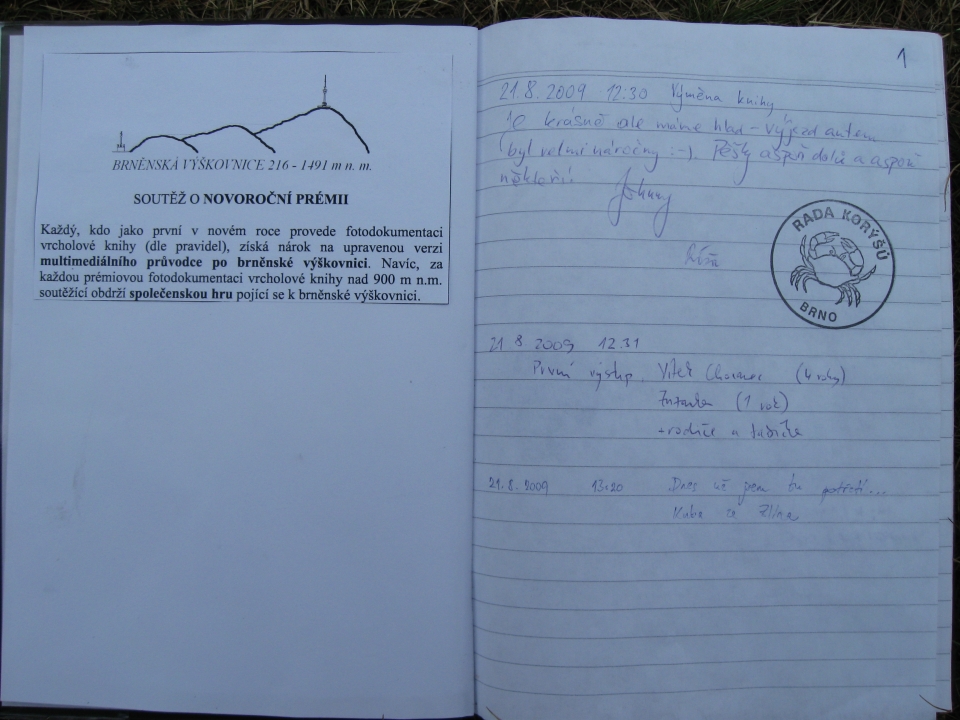 BRNĚNSKÁ VÝŠKOVNICE 216 - 1491 m n. m.
SOUTĚŽ O NOVOROČNÍ PRÉMII
Každý, kdo jako první v novém roce provede fotodokumentaci
vrcholové knihy (dle pravidel), získá nárok na upravenou verzi
multimediálního průvodce po brněnské výškovnici. Navíc, za
každou prémiovou fotodokumentaci vrcholové knihy nad 900 m n.m.
soutěžící obdrží společenskou hru pojící se k brněnské výškovnici.
1
21.8.2009 12:30 Výměna knihy
Je krásně ale máme hlad - výjezd autem
(byl velmi náročný :-). Pěšky aspoň dolů a aspoň
někteří
Johnny
RADA KORÝŠŮ
BRNO
21 8 2009 12.31
První výstup Vítek (4 roky)
Zuzanka (1 rok)
+ rodiče a
21.8.2009 13:20 Dnes už jsem tu potřetí...
Kuba ze Zlína